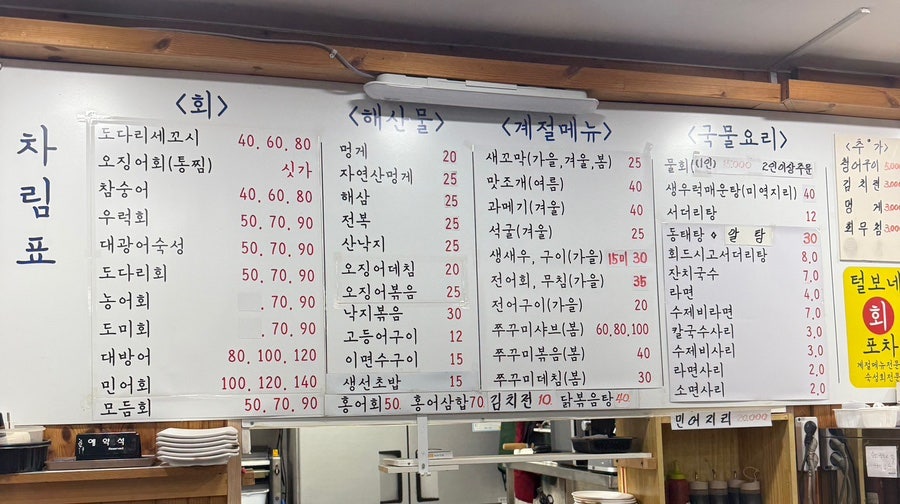 차림표
<회>
도다리세꼬시 40.60.80
오징어회(통찜) 싯가
참숭어 40.60.80
우럭회 50.70.90
대광어숙성 50.70.90
도다리회 50.70.90
농어회 .70.90
도미회 .70.90
대방어 80.100.120
민어회 100.120.140
모듬회 50.70.90
<해산물>
멍게 20
자연산멍게 25
해삼 25
전복 25
산낙지 25
오징어데침 20
오징어볶음 25
낙지볶음 30
고등어구이 12
이면수구이 15
생선초밥 15
홍어회50 홍어삼합70 김치전10 닭볶음탕40
<계절메뉴>
새꼬막(가을,겨울,봄) 25
맛조개(여름) 40
과메기(겨울) 40
석굴(겨울) 25
생새우, 구이(가을) 15미 30
전어회, 무침(가을) 35
전어구이(가을) 20
쭈꾸미샤브(봄) 60,80,100
쭈꾸미볶음(봄) 40
쭈꾸미데침(봄) 30
<국물요리>
물회(1인) 2인이상주문
생우럭매운탕(미역지리) 40
서더리탕 12
동태탕 알탕 30
회드시고서더리탕 8.0
잔치국수 7.0
라면 4.0
수제비라면 7.0
칼국수사리 3.0
수제비사리 3.0
라면사리 2.0
소면사리 2.0
민어지리
<추가>
청어구이 5,000
김치전 3,000
멍게 3,000
회무침 3,000
털보네
회
포차
계절메뉴전문
숙성회전문
예약석
Reserved